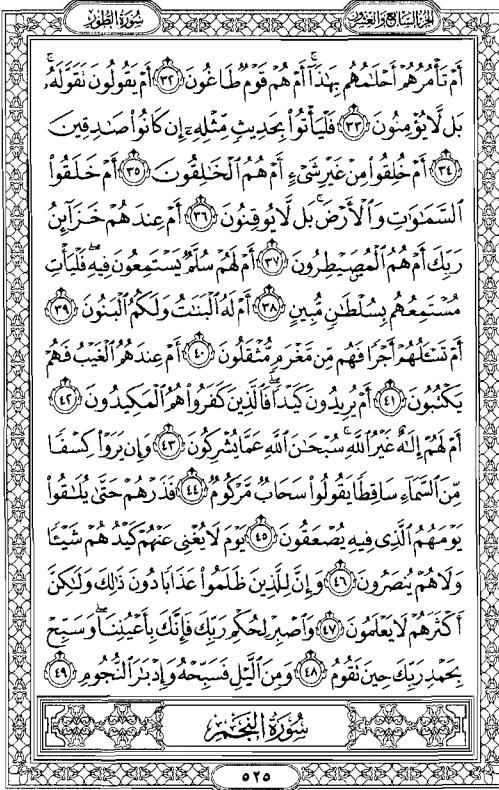 الجزء السابع والعشرون سورة الطور
أَمْ تَأْمُرُهُمْ أَحْلَٰمُهُم بِهَٰذَآ ۚ أَمْ هُمْ قَوْمٌ طَاغُونَ ٣٢ أَمْ يَقُولُونَ تَقَوَّلَهُۥ ۚ
بَل لَّا يُؤْمِنُونَ ٣٣ فَلْيَأْتُوا۟ بِحَدِيثٍ مِّثْلِهِۦٓ إِن كَانُوا۟ صَٰدِقِينَ
٣٤ أَمْ خُلِقُوا۟ مِنْ غَيْرِ شَىْءٍ أَمْ هُمُ ٱلْخَٰلِقُونَ ٣٥ أَمْ خَلَقُوا۟
ٱلسَّمَٰوَٰتِ وَٱلْأَرْضَ ۚ بَل لَّا يُوقِنُونَ ٣٦ أَمْ عِندَهُمْ خَزَآئِنُ
رَبِّكَ أَمْ هُمُ ٱلْمُصَۣيْطِرُونَ ٣٧ أَمْ لَهُمْ سُلَّمٌ يَسْتَمِعُونَ فِيهِ ۖ فَلْيَأْتِ
مُسْتَمِعُهُم بِسُلْطَٰنٍ مُّبِينٍ ٣٨ أَمْ لَهُ ٱلْبَنَٰتُ وَلَكُمُ ٱلْبَنُونَ ٣٩
أَمْ تَسْـَٔلُهُمْ أَجْرًا فَهُم مِّن مَّغْرَمٍ مُّثْقَلُونَ ٤٠ أَمْ عِندَهُمُ ٱلْغَيْبُ فَهُمْ
يَكْتُبُونَ ٤١ أَمْ يُرِيدُونَ كَيْدًا ۖ فَٱلَّذِينَ كَفَرُوا۟ هُمُ ٱلْمَكِيدُونَ ٤٢
أَمْ لَهُمْ إِلَٰهٌ غَيْرُ ٱللَّهِ ۚ سُبْحَٰنَ ٱللَّهِ عَمَّا يُشْرِكُونَ ٤٣ وَإِن يَرَوْا۟ كِسْفًا
مِّنَ ٱلسَّمَآءِ سَاقِطًا يَقُولُوا۟ سَحَابٌ مَّرْكُومٌ ٤٤ فَذَرْهُمْ حَتَّىٰ يُلَٰقُوا۟
يَوْمَهُمُ ٱلَّذِى فِيهِ يُصْعَقُونَ ٤٥ يَوْمَ لَا يُغْنِى عَنْهُمْ كَيْدُهُمْ شَيْـًٔا
وَلَا هُمْ يُنصَرُونَ ٤٦ وَإِنَّ لِلَّذِينَ ظَلَمُوا۟ عَذَابًا دُونَ ذَٰلِكَ وَلَٰكِنَّ
أَكْثَرَهُمْ لَا يَعْلَمُونَ ٤٧ وَٱصْبِرْ لِحُكْمِ رَبِّكَ فَإِنَّكَ بِأَعْيُنِنَا ۖ وَسَبِّحْ
بِحَمْدِ رَبِّكَ حِينَ تَقُومُ ٤٨ وَمِنَ ٱلَّيْلِ فَسَبِّحْهُ وَإِدْبَٰرَ ٱلنُّجُومِ ٤٩
سُورَةُ النَّجْمِ
٥٢٥